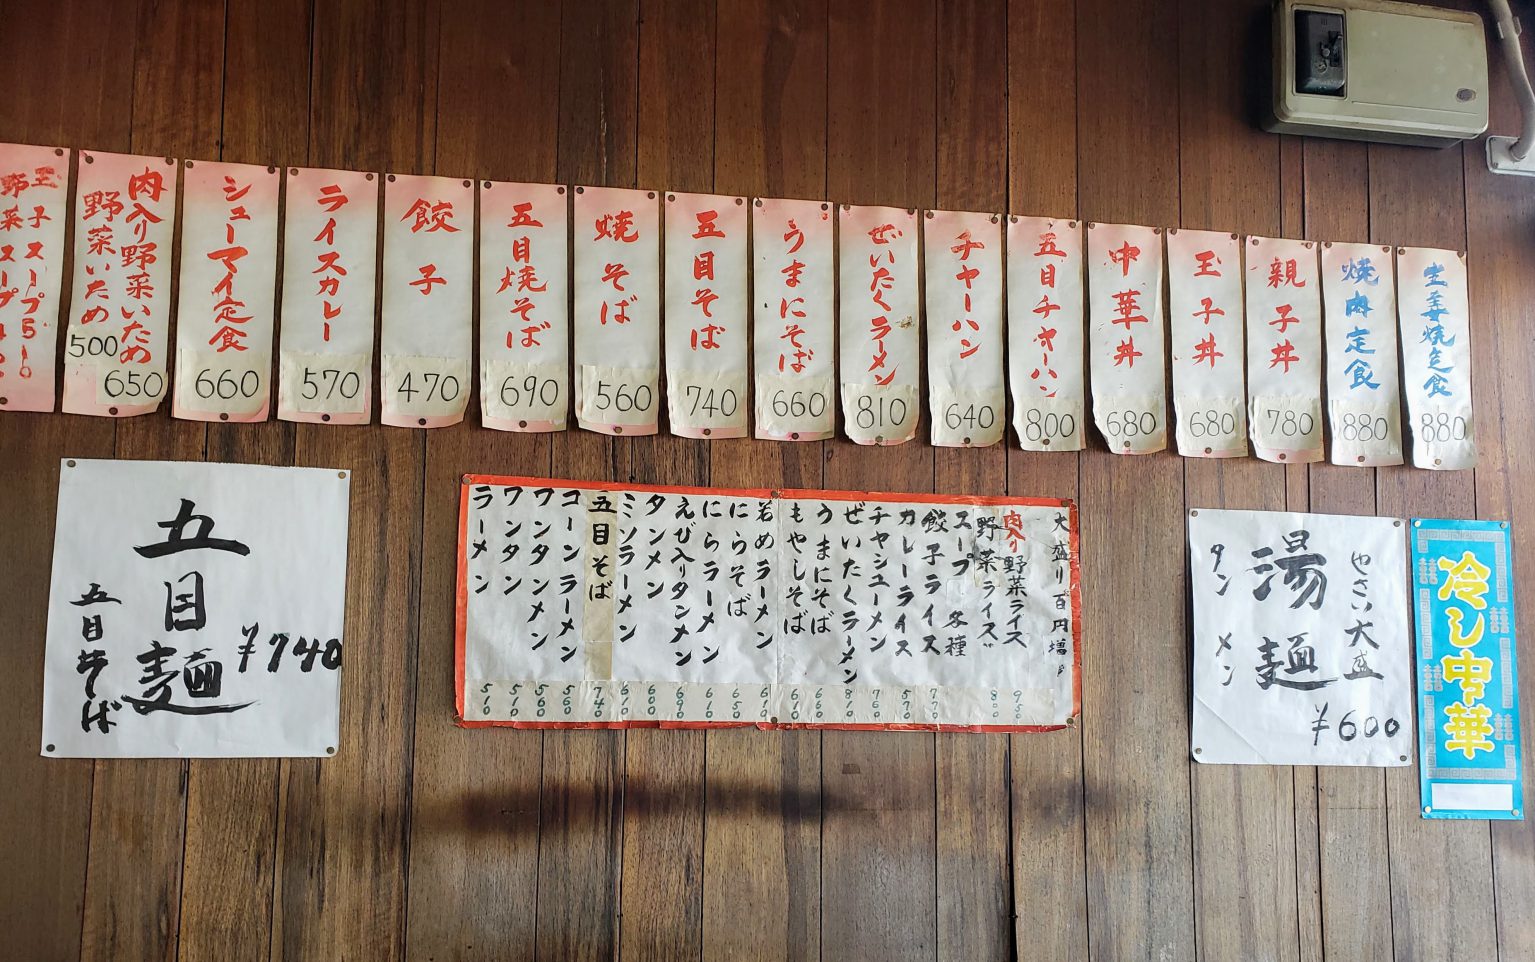 生姜焼定食
880
焼肉定食
880
親子丼
780
玉子丼
680
中華丼
680
五目チャーハン
800
チャーハン
640
ぜいたくラーメン
810
うまにそば
660
五目そば
740
焼そば
560
五目焼そば
690
餃子
470
ライスカレー
570
シューマイ定食
660
肉入り野菜いため
650
野菜いため
500
玉子スープ510
野菜スープ
冷し中華
やさい大盛
湯麺
タンメン
¥600
大盛り百円増し
肉入り野菜ライス
950
野菜ライス
800
スープ各種
餃子ライス
770
カレーライス
570
チャシューメン
760
ぜいたくラーメン
810
うまにそば
660
もやしそば
610
若めラーメン
610
にらそば
650
にらラーメン
610
えび入りタンメン
690
タンメン
600
ミソラーメン
610
五目そば
740
コーンラーメン
560
ワンタンメン
560
ワンタン
510
ラーメン
510
五目麺
¥740
五目そば